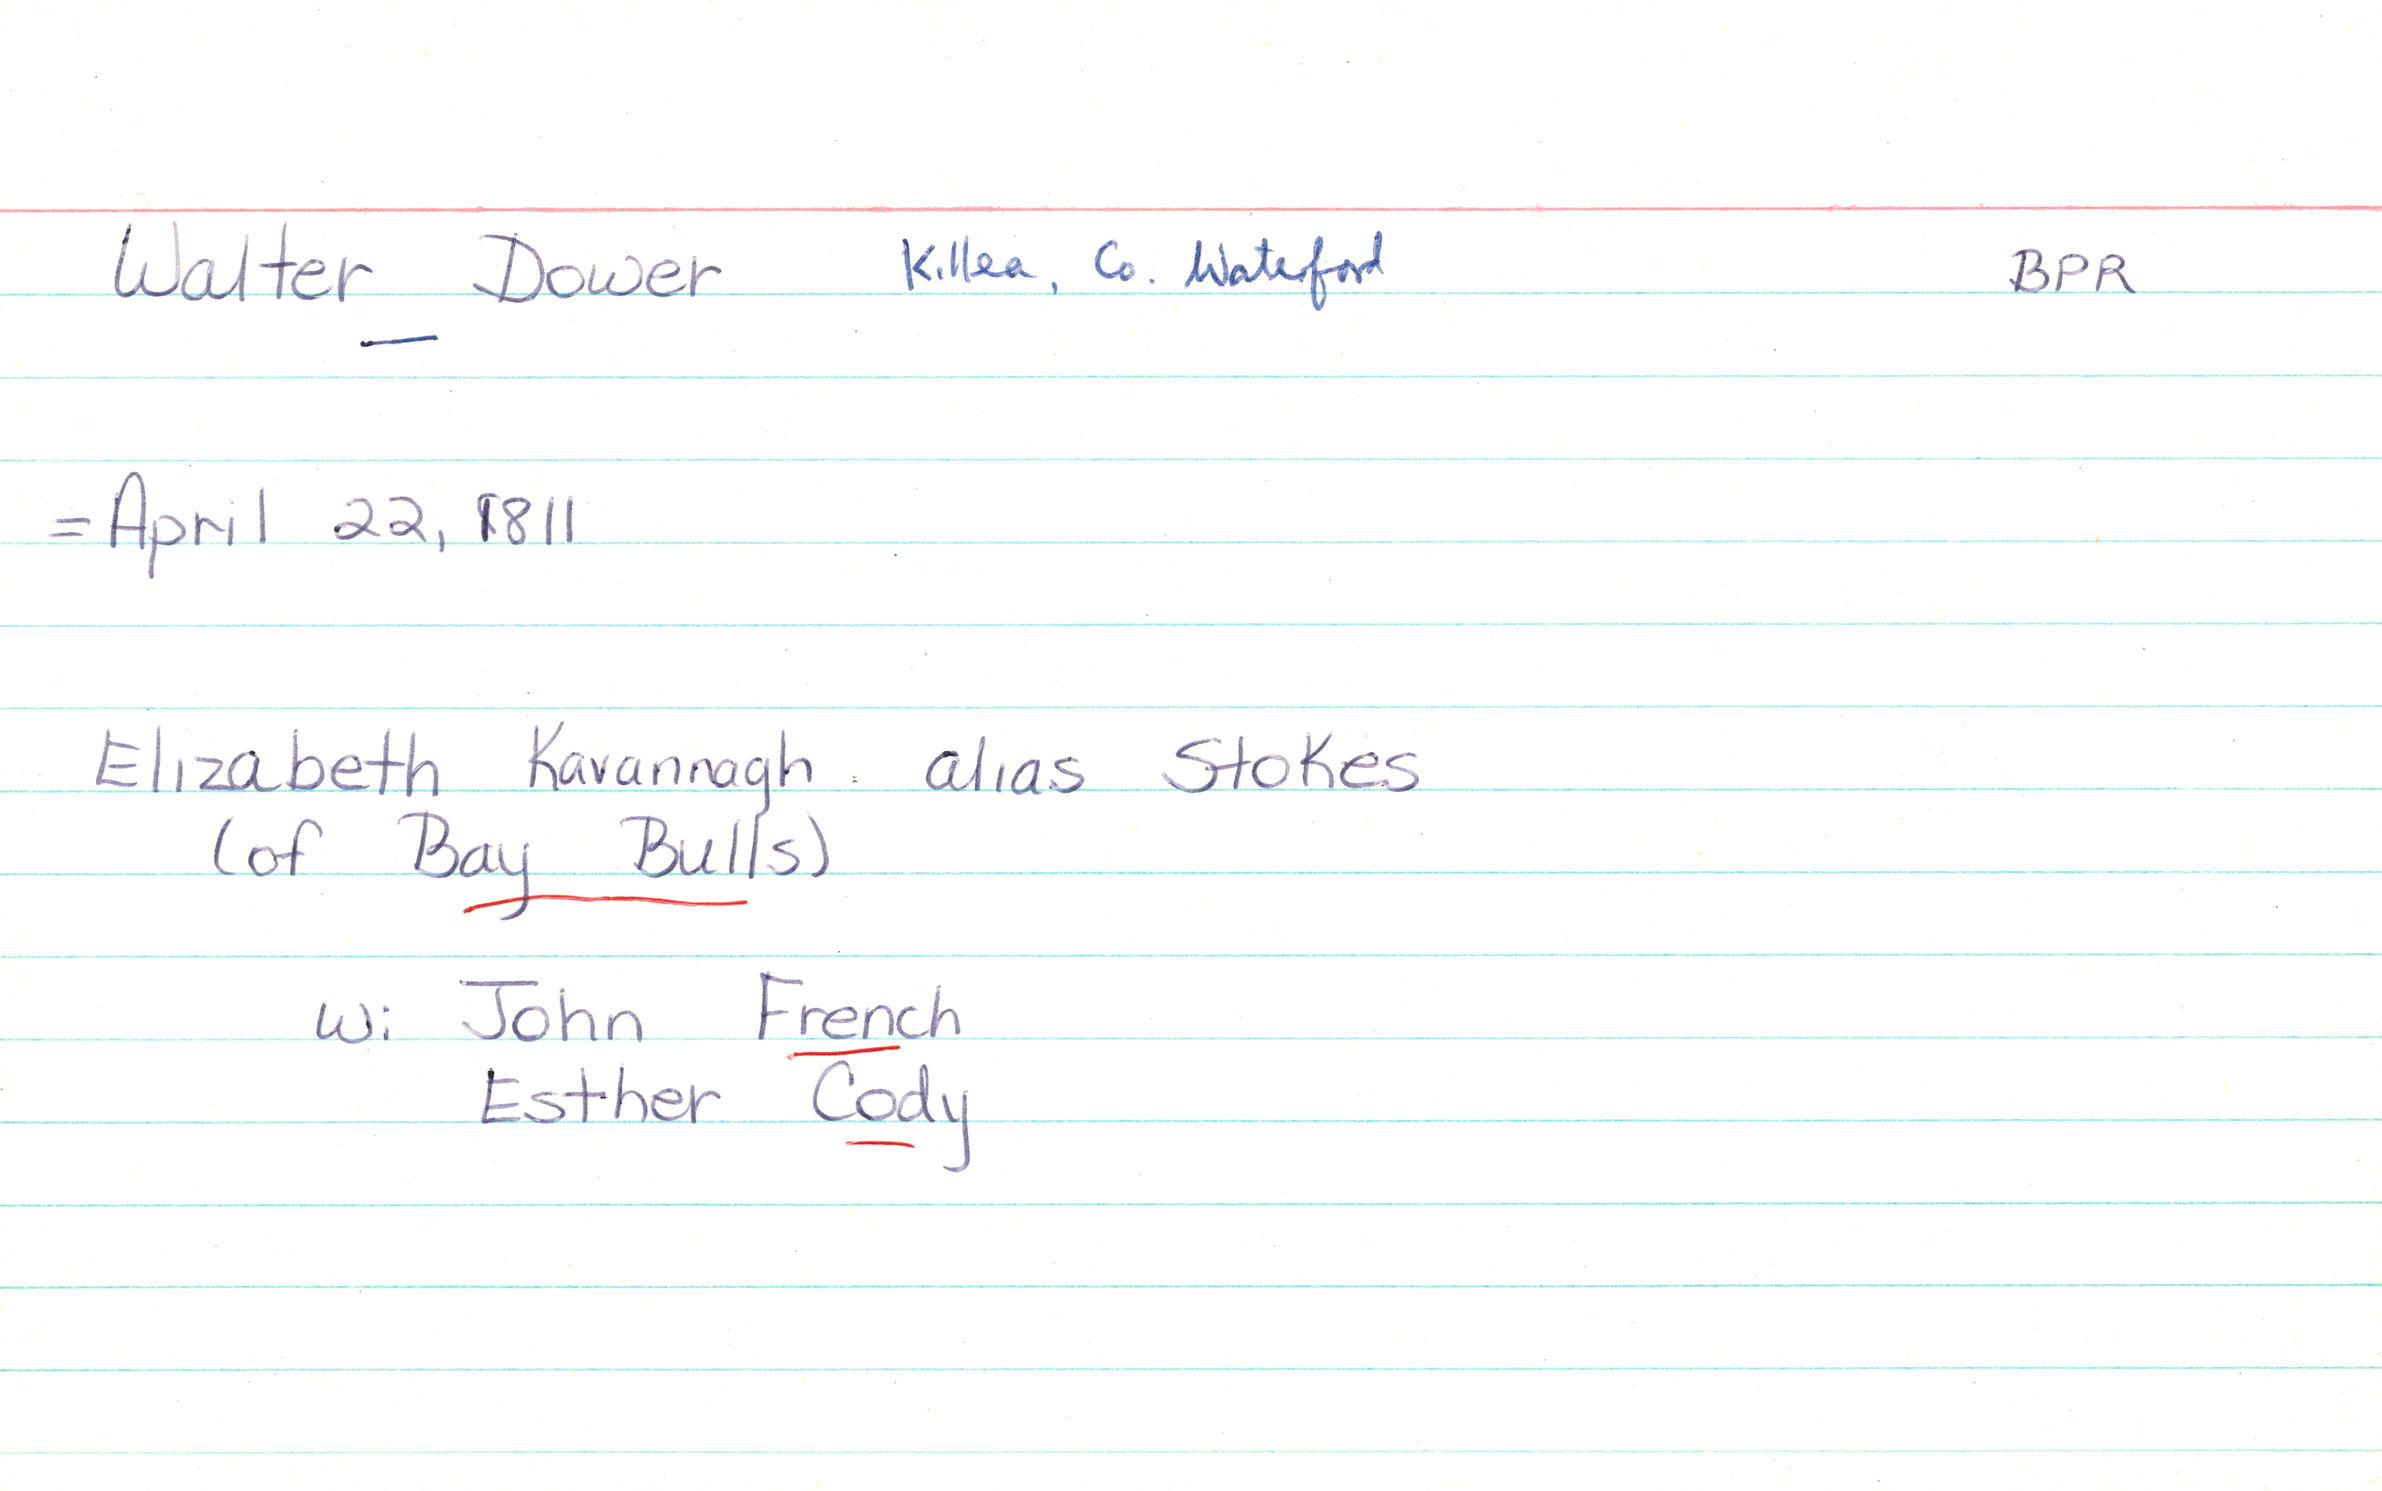 Walter Dower Killea, Co. Waterford BPR
= April 22, 1811
Elizabeth Kavannagh alias Stokes
(of Bay Bulls)
W: John French
Esther Cody